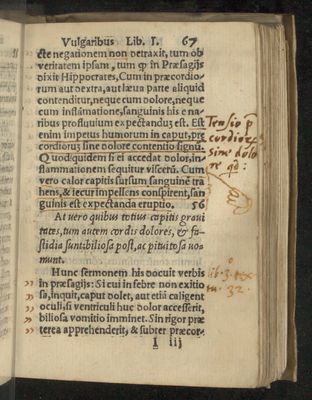 Vulgaribus Lib. I. 67
cte negationem non detraxit, tum ob
veritatem ipsam, tum qꝫ in Præsagijs
dixit Hippocrates, Cum in præcordio-
rum aut dextra, aut læua parte aliquid
contenditur, neque cum dolore, neque
cum inflāmatione, sanguinis hic e na-
ribus profluuium expectandus est. Est
enim impetus humorum in caput, præ
cordiorū sine dolore contentio signū.
Quod quidem si ei accedat dolor, in-
flammationem sequitur viscerū. Cum
vero calor capitis sursum sanguinē tra
hens, & iecur impellens conspirent, san
guinis est expectanda eruptio. 56
At vero quibus totius capitis graui
tates, tum autem cordis dolores, & fa-
stidia sunt, biliosa post, ac pituitosa vo-
munt.
Hunc sermonem his docuit verbis
in præsagijs: Si cui in febre non exitio
sa, inquit, caput dolet, aut etiā caligent
oculi, si ventriculi huc dolor accesserit,
biliosa vomitio imminet. Sin rigor præ
terea apprehenderit, & subter præcor-
I iij
Tensio p
cordiorū
sine dolo
re
lib. 3.
32.